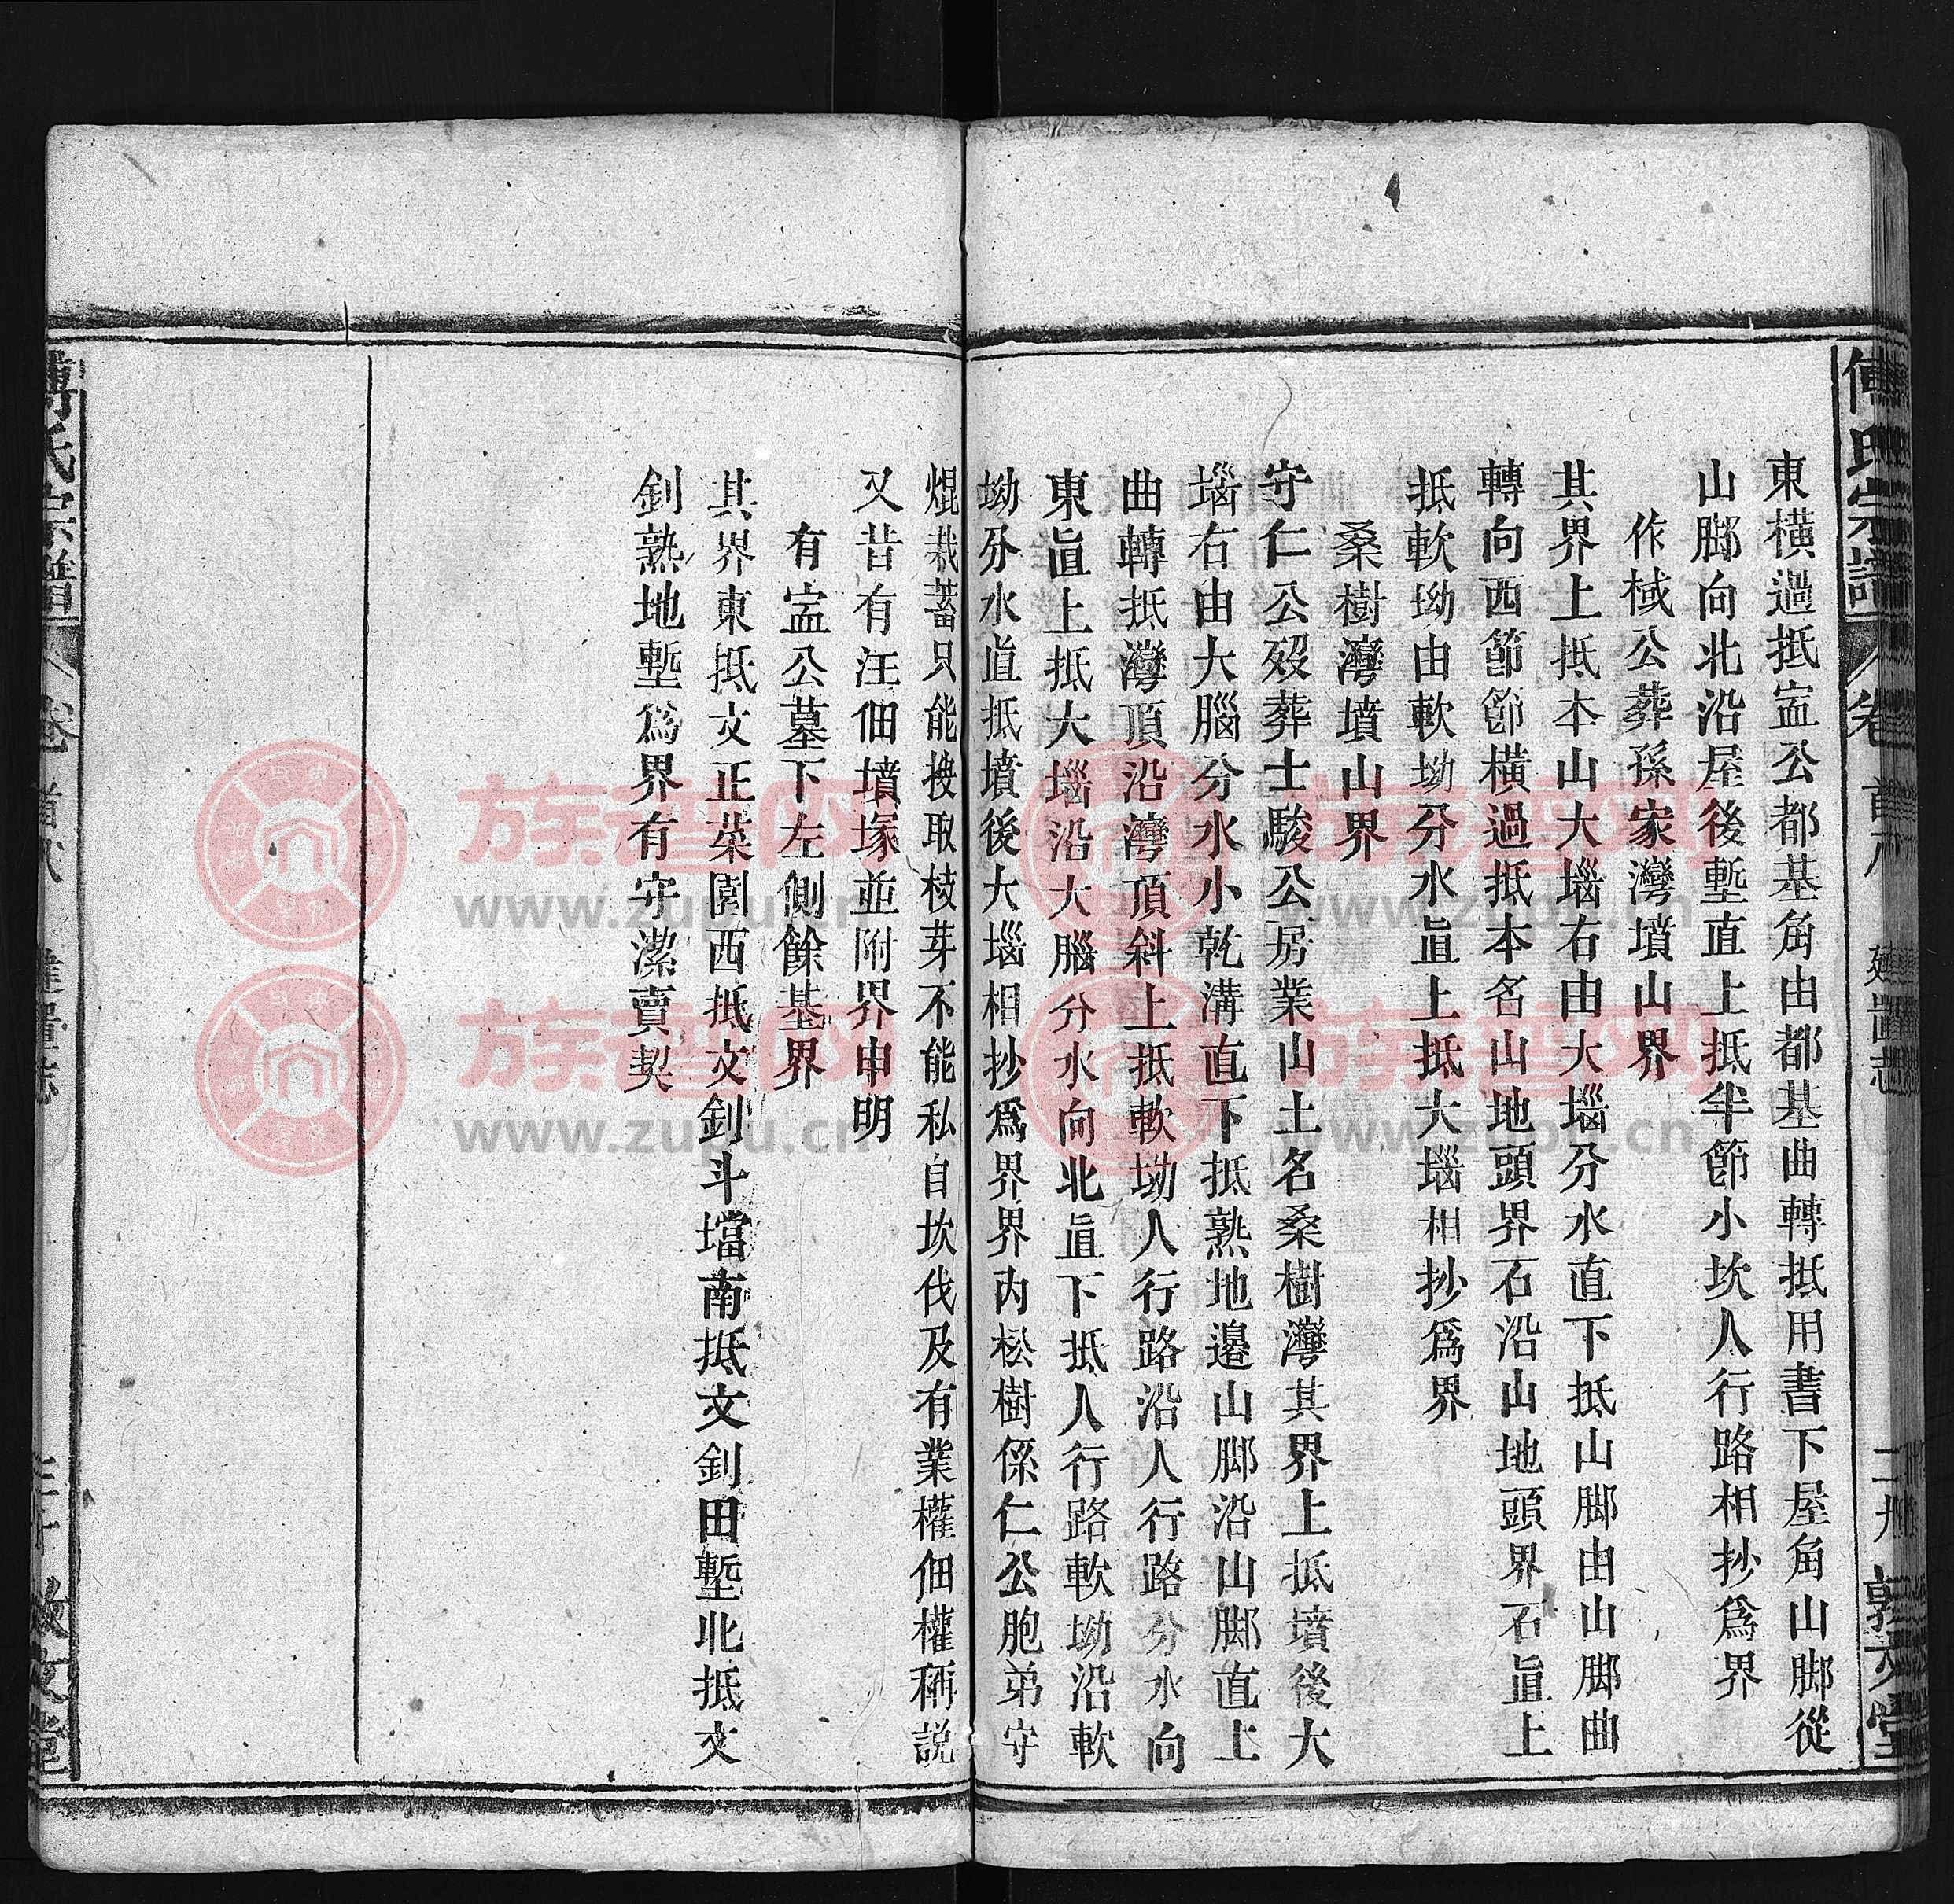 傅氏宗譜 卷首 建置志 敦文堂
東橫過抵㝎公都基角由都基曲轉抵用書下屋角山脚從
山脚向北沿屋後塹直上抵半節小坎人行路相抄爲界
作棫公葬孫家灣墳山界
其界上抵本山大堖右由大堖分水直下抵山脚由山脚曲
轉向西節節橫過抵本名山地頭界石沿山地頭界石直上
抵軟坳由軟坳分水直上抵大堖相抄爲界
桑樹灣墳山界
守仁公歿葬士駿公房業山土名桑樹灣其界上抵墳後大
堖右由大腦分水小乾溝直下抵熟地邉山脚沿山脚直上
曲轉抵灣頂沿灣頂斜上抵軟坳人行路沿人行路分水向
東直上抵大堖沿大腦分水向北直下抵人行路軟坳沿軟
坳分水直抵墳後大堖相抄爲界界內松樹係仁公胞弟守
焜栽蓄只能㨗取枝芽不能私自坎伐及有業權佃權稱説
又昔有汪佃墳塚並附界申明
有㝎公墓下左側餘基界
其界東抵文正菜園西抵文釗斗壋南抵文釗田塹北抵文
釗熟地塹爲界有守潔賣契
傅氏宗譜 卷首 建置志 敦文堂
族譜网
www.zupu.cn
族譜网
www.zupu.cn
族譜网
www.zupu.cn
族譜网
www.zupu.cn